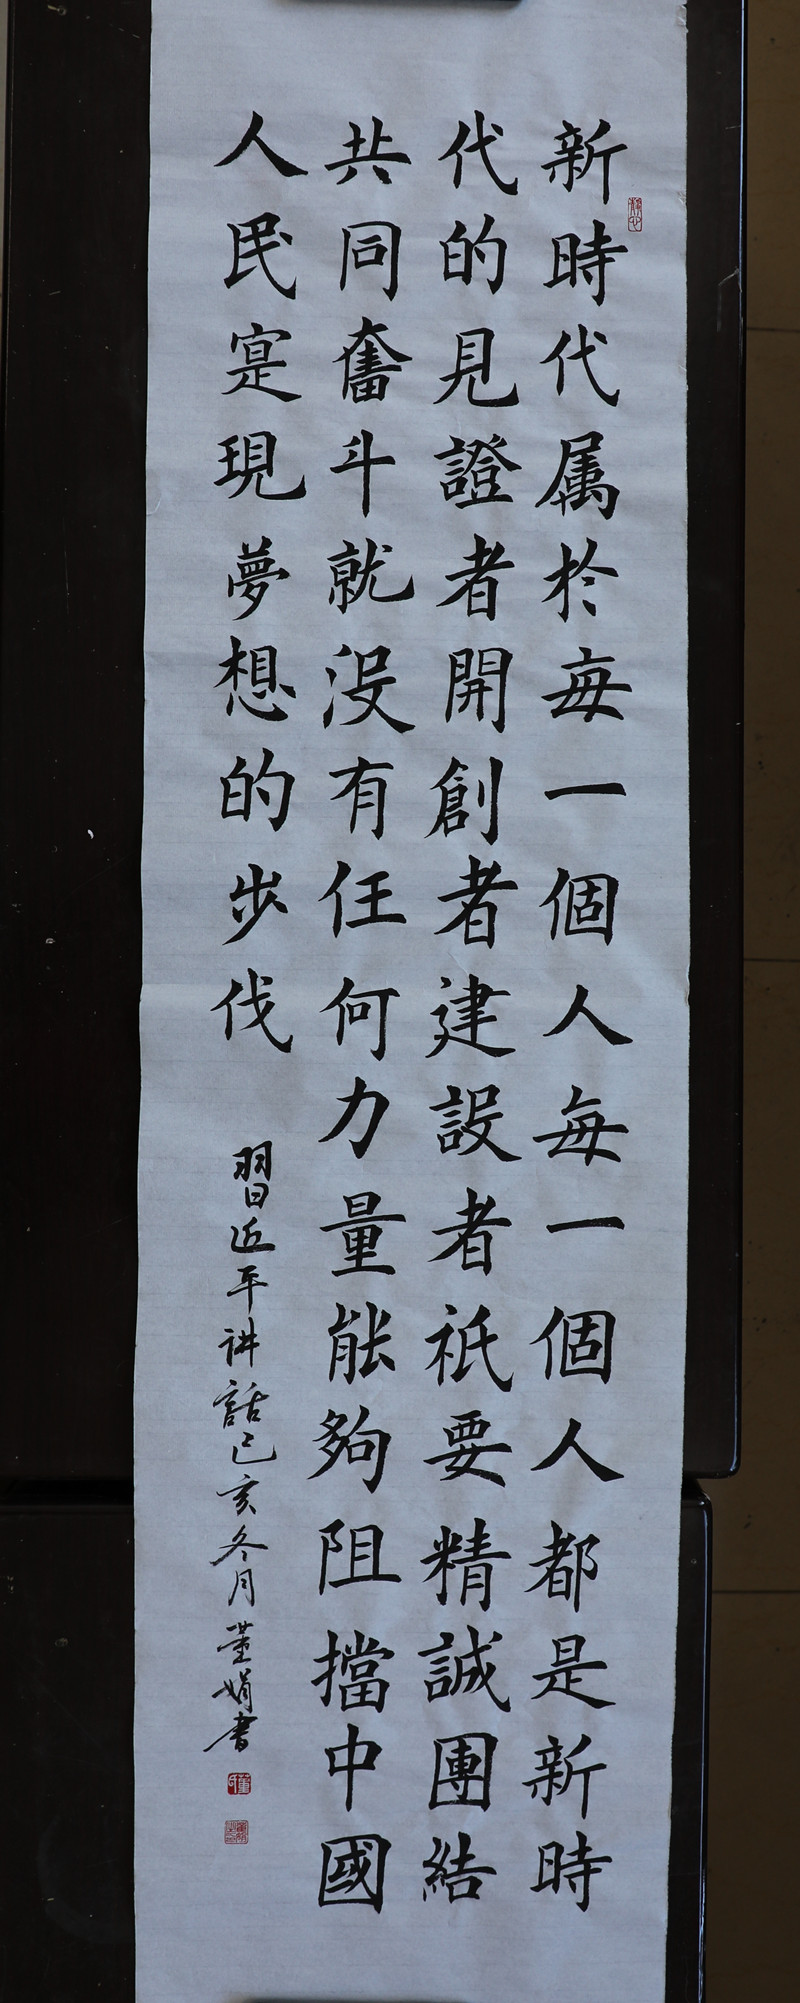 新時代属於每一個人每一個人都是新時
代的見證者開創者建設者祇要精誠團結
共同奮斗就沒有任何力量能夠阻擋中國
人民寔現夢想的步伐
習近平講話己亥冬月董娟書